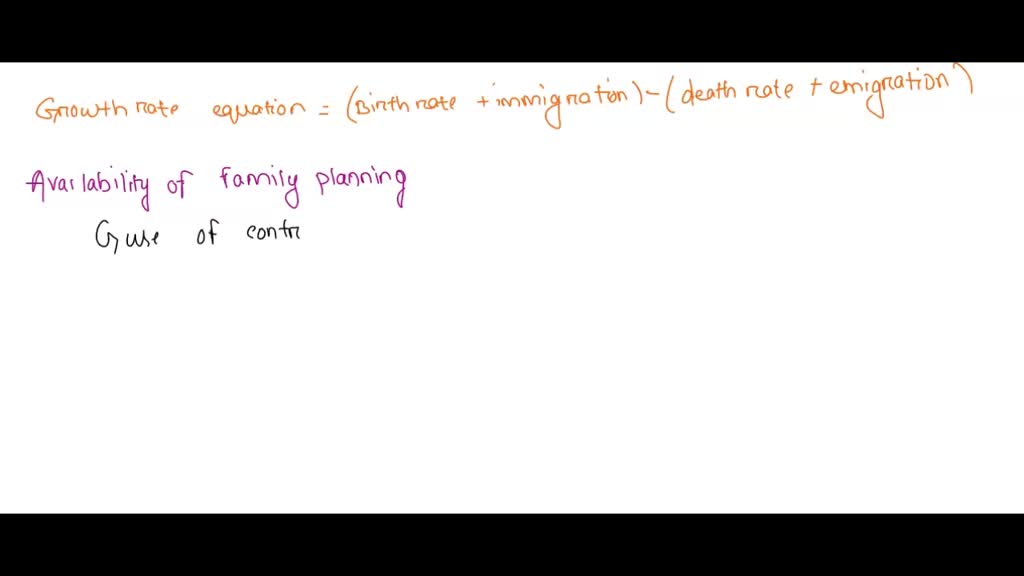 Growth rate equation = (Birth rate + immigration) - (death rate + emigration)
Availability of family planning
↳ use of contr